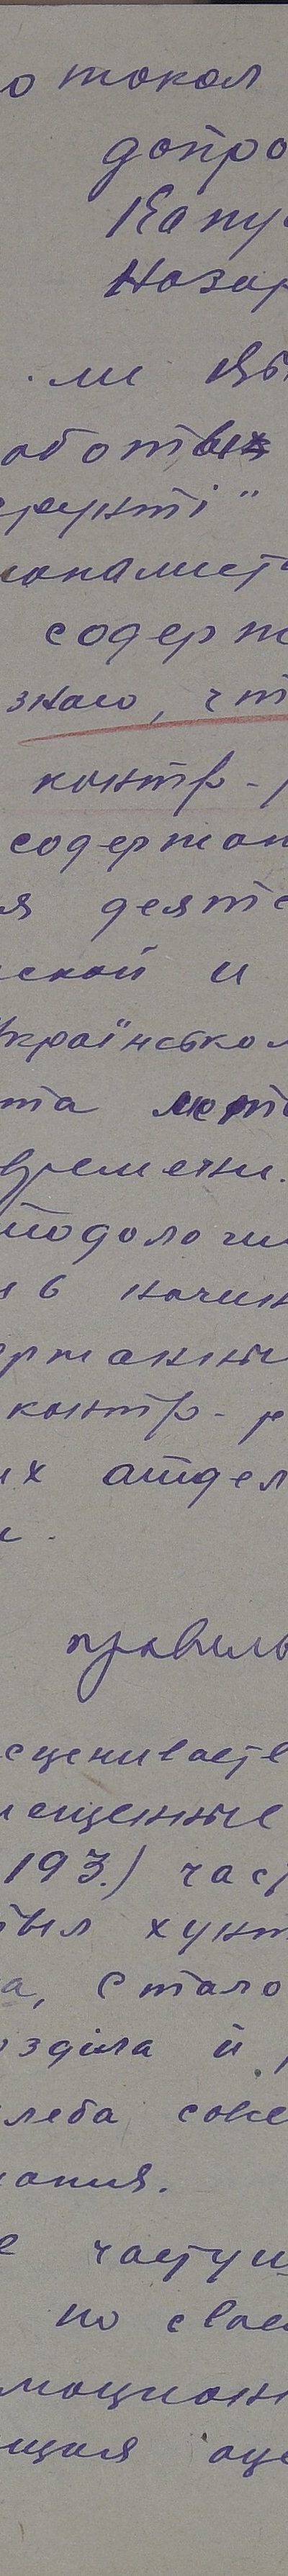 о токол
допро
Капу
Назар
ли Вы
абот
ерунті"
оналист
содерж
знаю, чт
контр-р
содержан
я деяте
ской и
Україньско
та
времени.
тодологи
в начин
ержанны
контр-р
их отдел
и.
правиль
сценивает
мещенные
193.) част
был хунт
а, стало
озділа й
леба сове
ания.
е частуш
по свое
моцион
щая оце